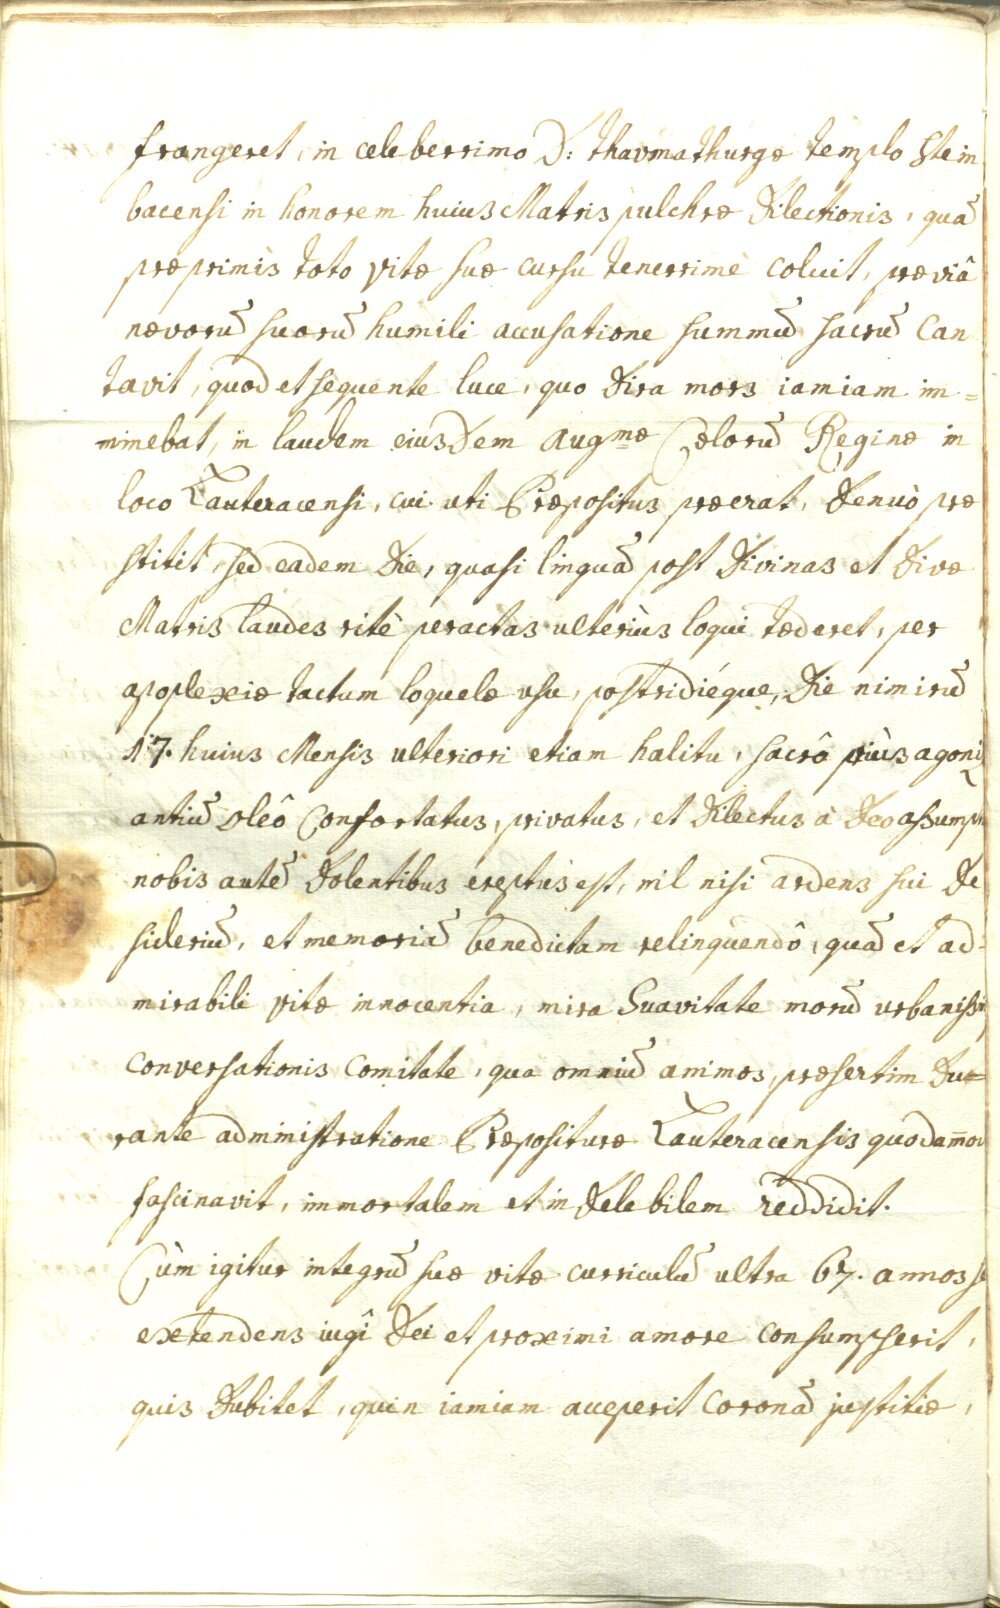 frangeret, in celeberrimo D: thavmathurgæ templo Stein
bacensi in honorem huius Matris pulchræ dilectionis, quā
præprimis toto vitæ suæ cursu tenerrimè coluit, præviâ
nævorū suorū humili accusatione summū sacrū can
tavit, quod et sequente luce, quo dira mors iamiam im=
minebat, in laudem eiusdem Augmæ Cælorū Reginæ in
loco Lauteracensi, cui uti Præpositus præerat, denuò præ
stitit, sed eadem die, quasi linguā post divinas et divæ
Matris laudes ritè peractas ulteriùs loqui tæderet, per
apoplexiæ tactum loquelæ usu, postridiéque, die nimirū
17. huius Mensis ulteriori etiam halitu, sacrô priùs agoni
zantiū oleô confortatus, privatus, et dilectus à Deo assumpt
nobis autē dolentibus ereptus est, nil nisi ardens sui de
sideriū, et memoriā benedictam relinquendô, quā et ad=
mirabili vitæ innocentia, mira suavitate morū urbanissi
conversationis comitate, qua omniū animos, præsertim du=
rante administratione Præposituræ Lauteracensis quodam̄od
fascinavit, immortalem et indelebilem reddidit.
Cùm igitur integrū suæ vitæ curriculū ultra 67. annos se
extendens iugî Dei et proximi amore consumpserit,
quis dubitet, quin iamiam acceperit coronā justitiæ,